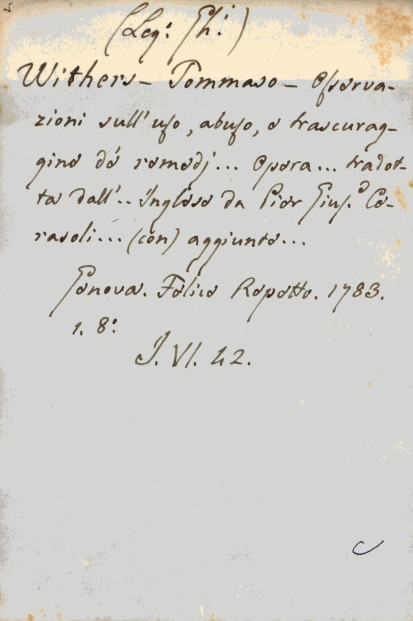 (Leg: Gh:)
Withers - Tommaso - Osserva-
zioni sull'uso, abuso, e trascurag-
gine de' remedj... Opera... tradot-
ta dall'.. Inglese da Pier Gius.e Ce-
resoli... (con) aggiunte...
Genova. Felice Repetto. 1783.
1. 8:
J. VI. 42.